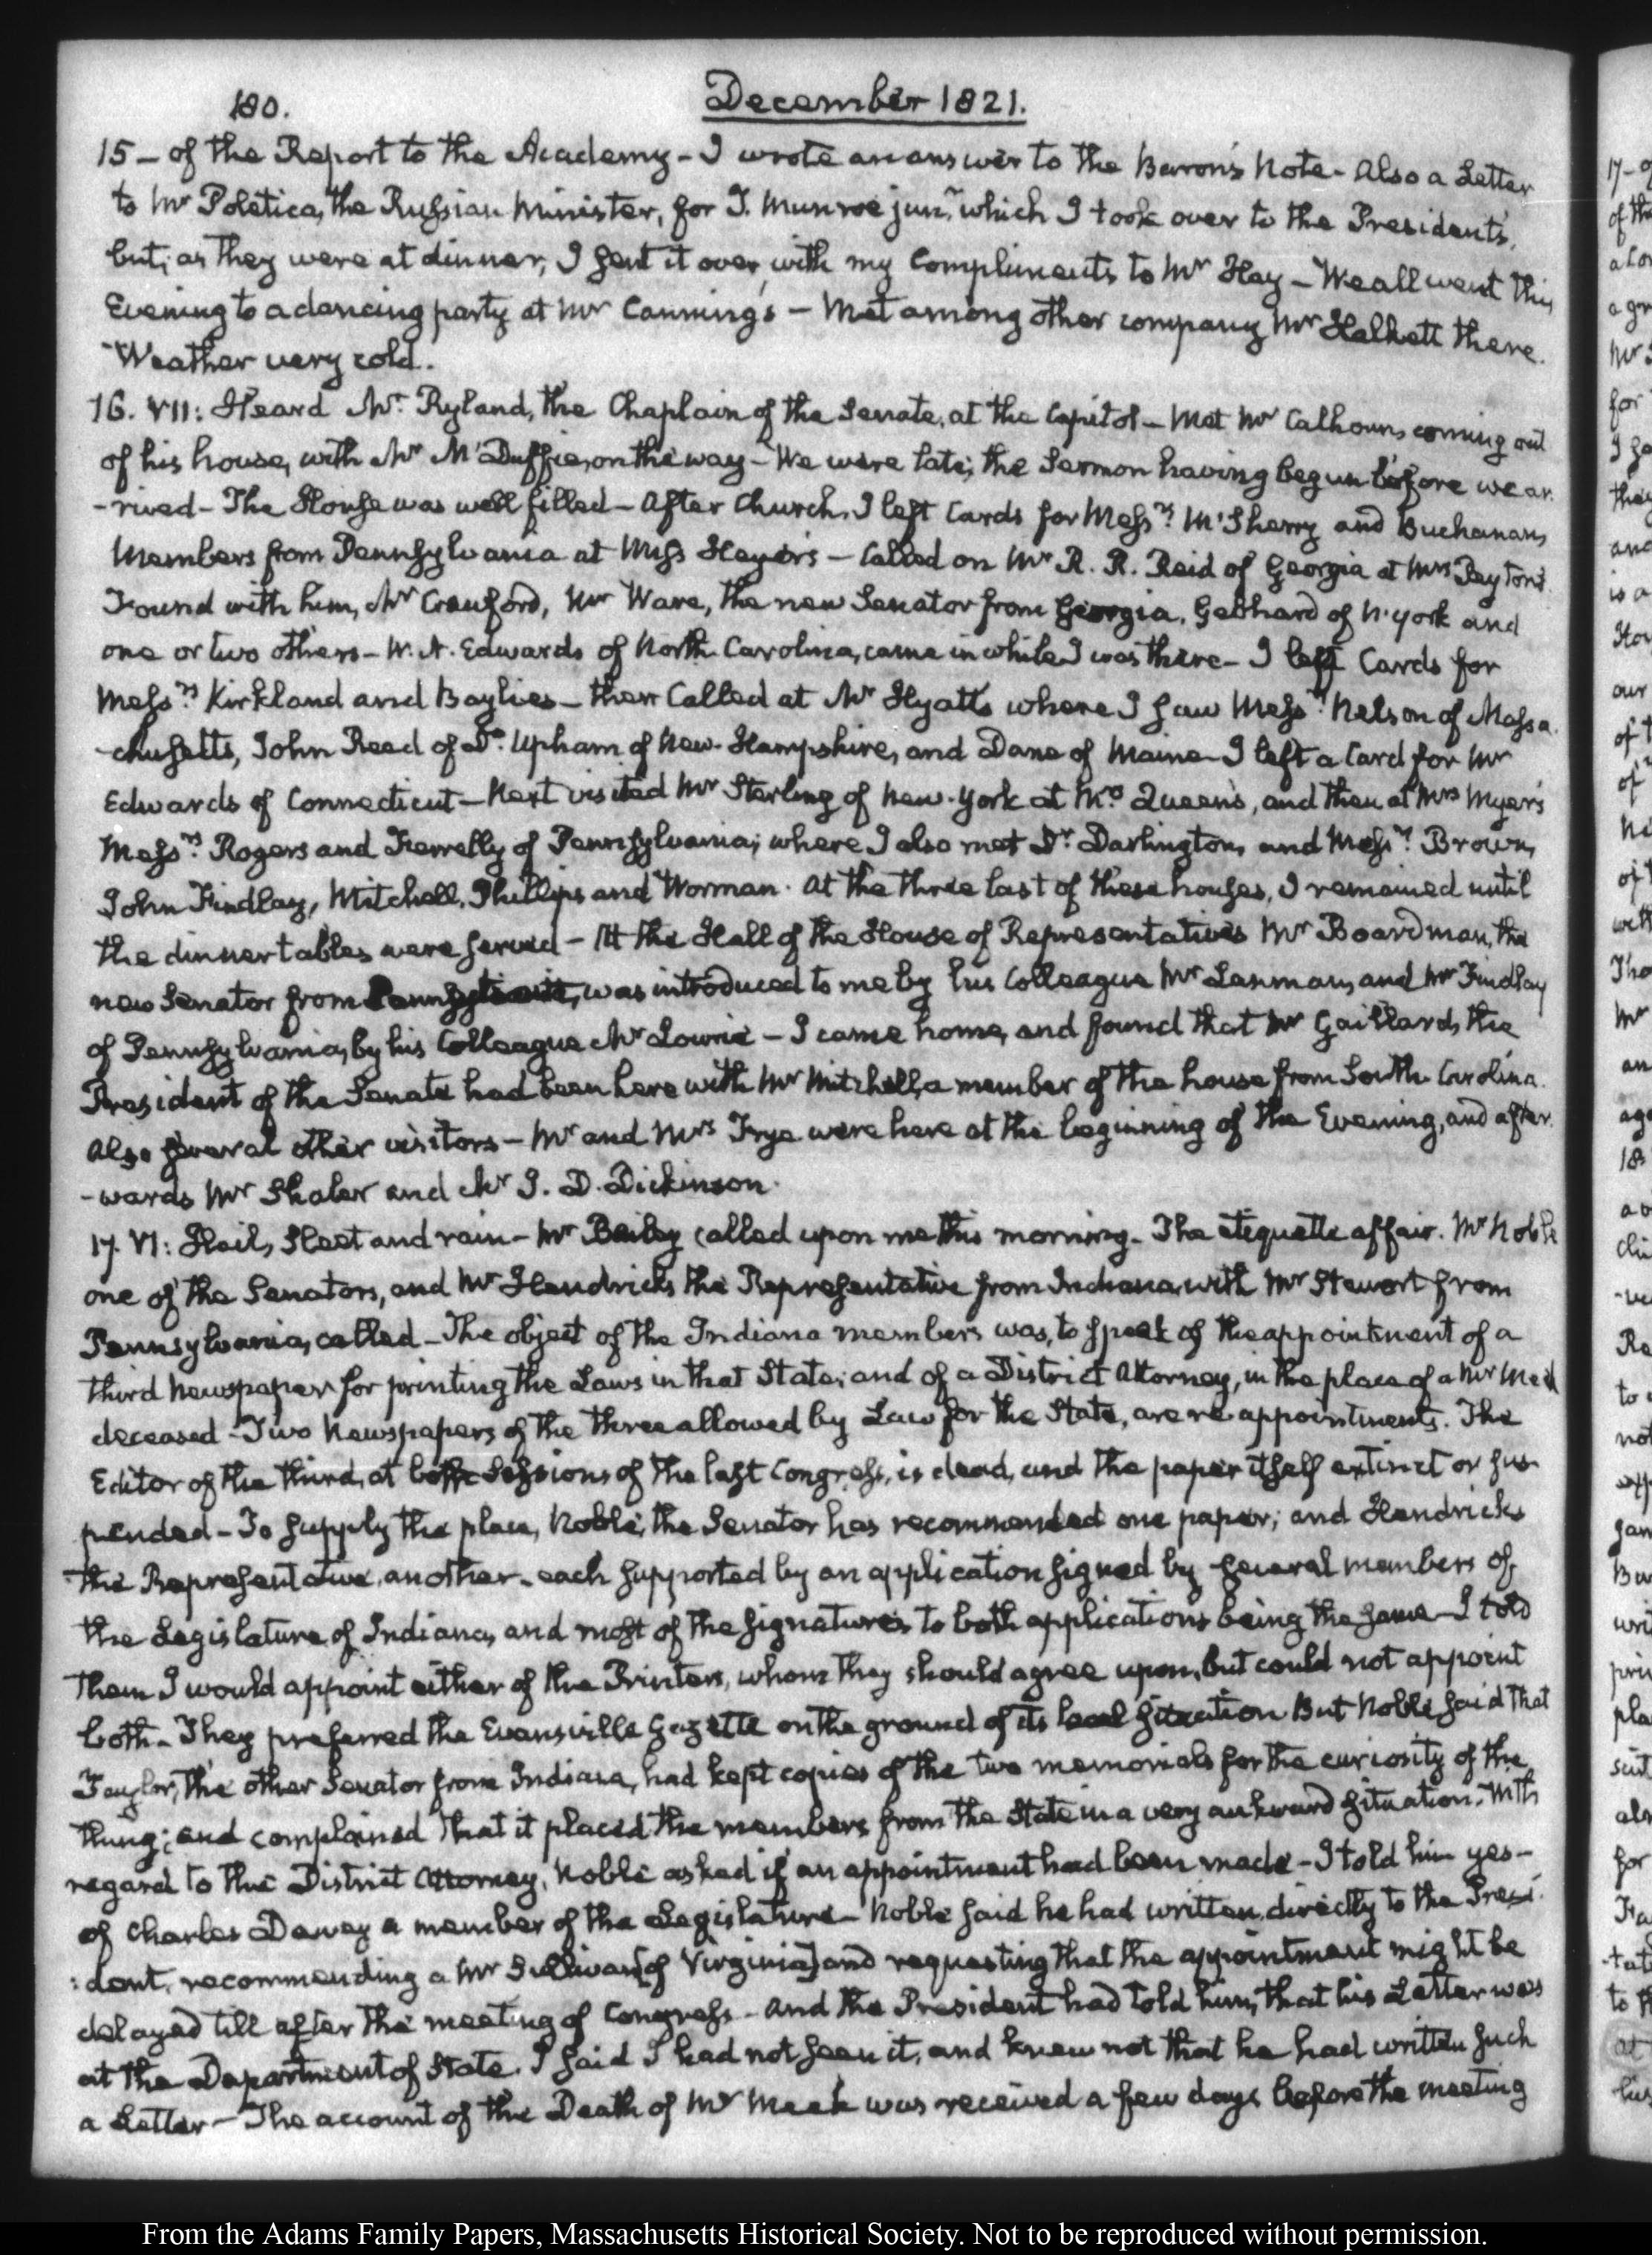 180.
December 1821.
15 — of the Report to the Academy — I wrote an answer to the Baron's Note — Also a Letter
to Mr Poletica, the Russian Minister, for J. Munroe junr. which I took over to the Presidents,
but, as they were at dinner, I sent it over, with my Compliments to Mr Hay — We all went this
Evening to a dancing party at Mr Canning's — Met among other company Mr Halkett there.
Weather very cold.
16. VII: Heard Mr. Ryland, the Chaplain of the Senate, at the Capitol — Met Mr Calhoun, coming out
of his house, with Mr McDuffie, on the way — We were late; the Sermon having begun before we ar-
-rived — The House was well filled — After Church, I left Cards for Messrs. McSherry and Buchanan,
Members from Pennsylvania at Miss Heyer's — Called on Mr R. R. Reid of Georgia at Mrs Peyton's
Found with him, Mr Crawford, Mr Ware, the new Senator from Georgia, Gebhard of N. York and
one or two others — W. N. Edwards of North Carolina, came in while I was there — I left Cards for
Messrs. Kirkland and Baylies — then Called at Mr Hyatt's where I saw Messrs. Nelson of Massa-
-chusetts, John Reed of Do. Upham of New-Hampshire, and Dane of Maine — I left a Card for Mr
Edwards of Connecticut — Next visited Mr Sterling of New-York at Mrs Queen's, and then at Mrs Myer's
Messrs. Rogers and Farrelly of Pennsylvania; where I also met Dr. Darlington, and Messrs. Brown,
John Findlay, Mitchell, Phillips and Worman. At the three last of these houses, I remained until
the dinner tables were served — At the Hall of the House of Representatives Mr Boardman, the
new Senator from was introduced to me by his Colleague Mr Lanman, and Mr Findlay
of Pennsylvania, by his Colleague Mr Lowrie — I came home, and found that Mr Gaillard, the
President of the Senate had been here with Mr Mitchell, a member of the house from South-Carolina.
Also several other visitors — Mr and Mrs Frye were here at the beginning of the Evening, and after-
-wards Mr Shaler and Mr J. D. Dickinson.
17. VI: Hail, Sleet and rain — Mr Bailey called upon me this morning. The etiquette affair. Mr Noble
one of the Senators, and Mr Hendricks the Representative from Indiana, with Mr Stewart from
Pennsylvania, called — The object of the Indiana members was, to speak of the appointment of a
third Newspaper for printing the Laws in that State; and of a District Attorney, in the place of a Mr Meek
deceased — Two Newspapers of the three allowed by Law for the State, are re-appointments. The
Editor of the third, at both Sessions of the last Congress, is dead, and the paper itself extinct or sus-
pended — To supply the place, Noble, the Senator has recommended one paper; and Hendricks
the Representative, another — each supported by an application signed by several members of
the Legislature of Indiana, and most of the signatures to both applications being the same — I told
them I would appoint either of the Printers, whom they should agree upon, but could not appoint
both — They preferred the Evansville Gazette on the ground of its local situation But Noble said that
Taylor, the other Senator from Indiana, had kept copies of the two memorials for the curiosity of the
thing; and complained that it placed the members from the State in a very aukward situation. With
regard to the District Attorney, Noble asked if an appointment had been made — I told him yes —
of Charles Dewey a member of the Legislature — Noble said he had written, directly to the Presi-
:dent, recommending a Mr Sullivan [of Virginia] and requesting that the appointment might be
delayed till after the meeting of Congress — And the President had told him, that his Letter was
at the Department of State. I said I had not seen it, and knew not that he had written such
a Letter — The account of the Death of Mr Meek was received a few days before the meeting
From the Adams Family Papers, Massachusetts Historical Society. Not to be reproduced without permission.